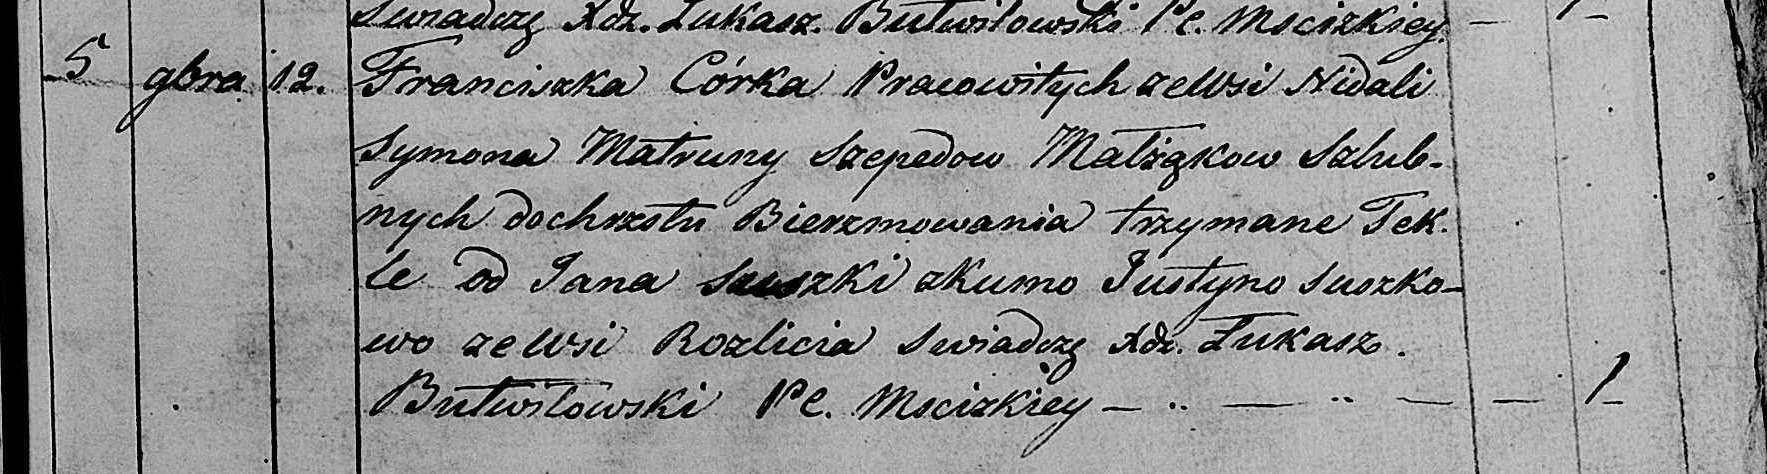 Swiadczę Xdz. Łukasz. Butwiłowski P C. Mscizkiey. — 1 —
5 9bra 12. Franciszka Córka Pracowitych ze Wsi Nidali
Symona Matruny Szepedow Małżąkow Szlub-
nych do chrzstu Bierzmowania trzymane Tek-
le od Jana Suszki zkumo Justyno Suszko-
wo ze Wsi Rozlicia Swiadczę Xdz. Łukasz.
Butwiłowski P C. Mscizkiey — .. — .. — — 1 —